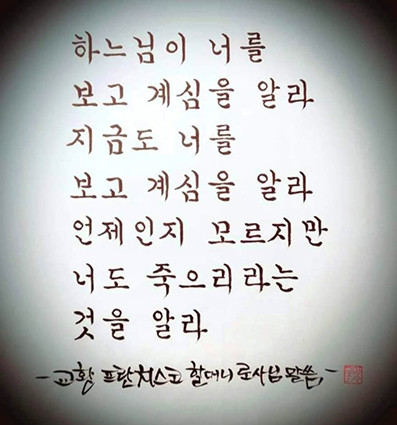 하느님이 너를
보고 계심을 알라
지금도 너를
보고 계심을 알라
언제인지 모르지만
너도 죽으리라는
것을 알라
- 교황 프란치스코 할머니 로사님 말씀, -